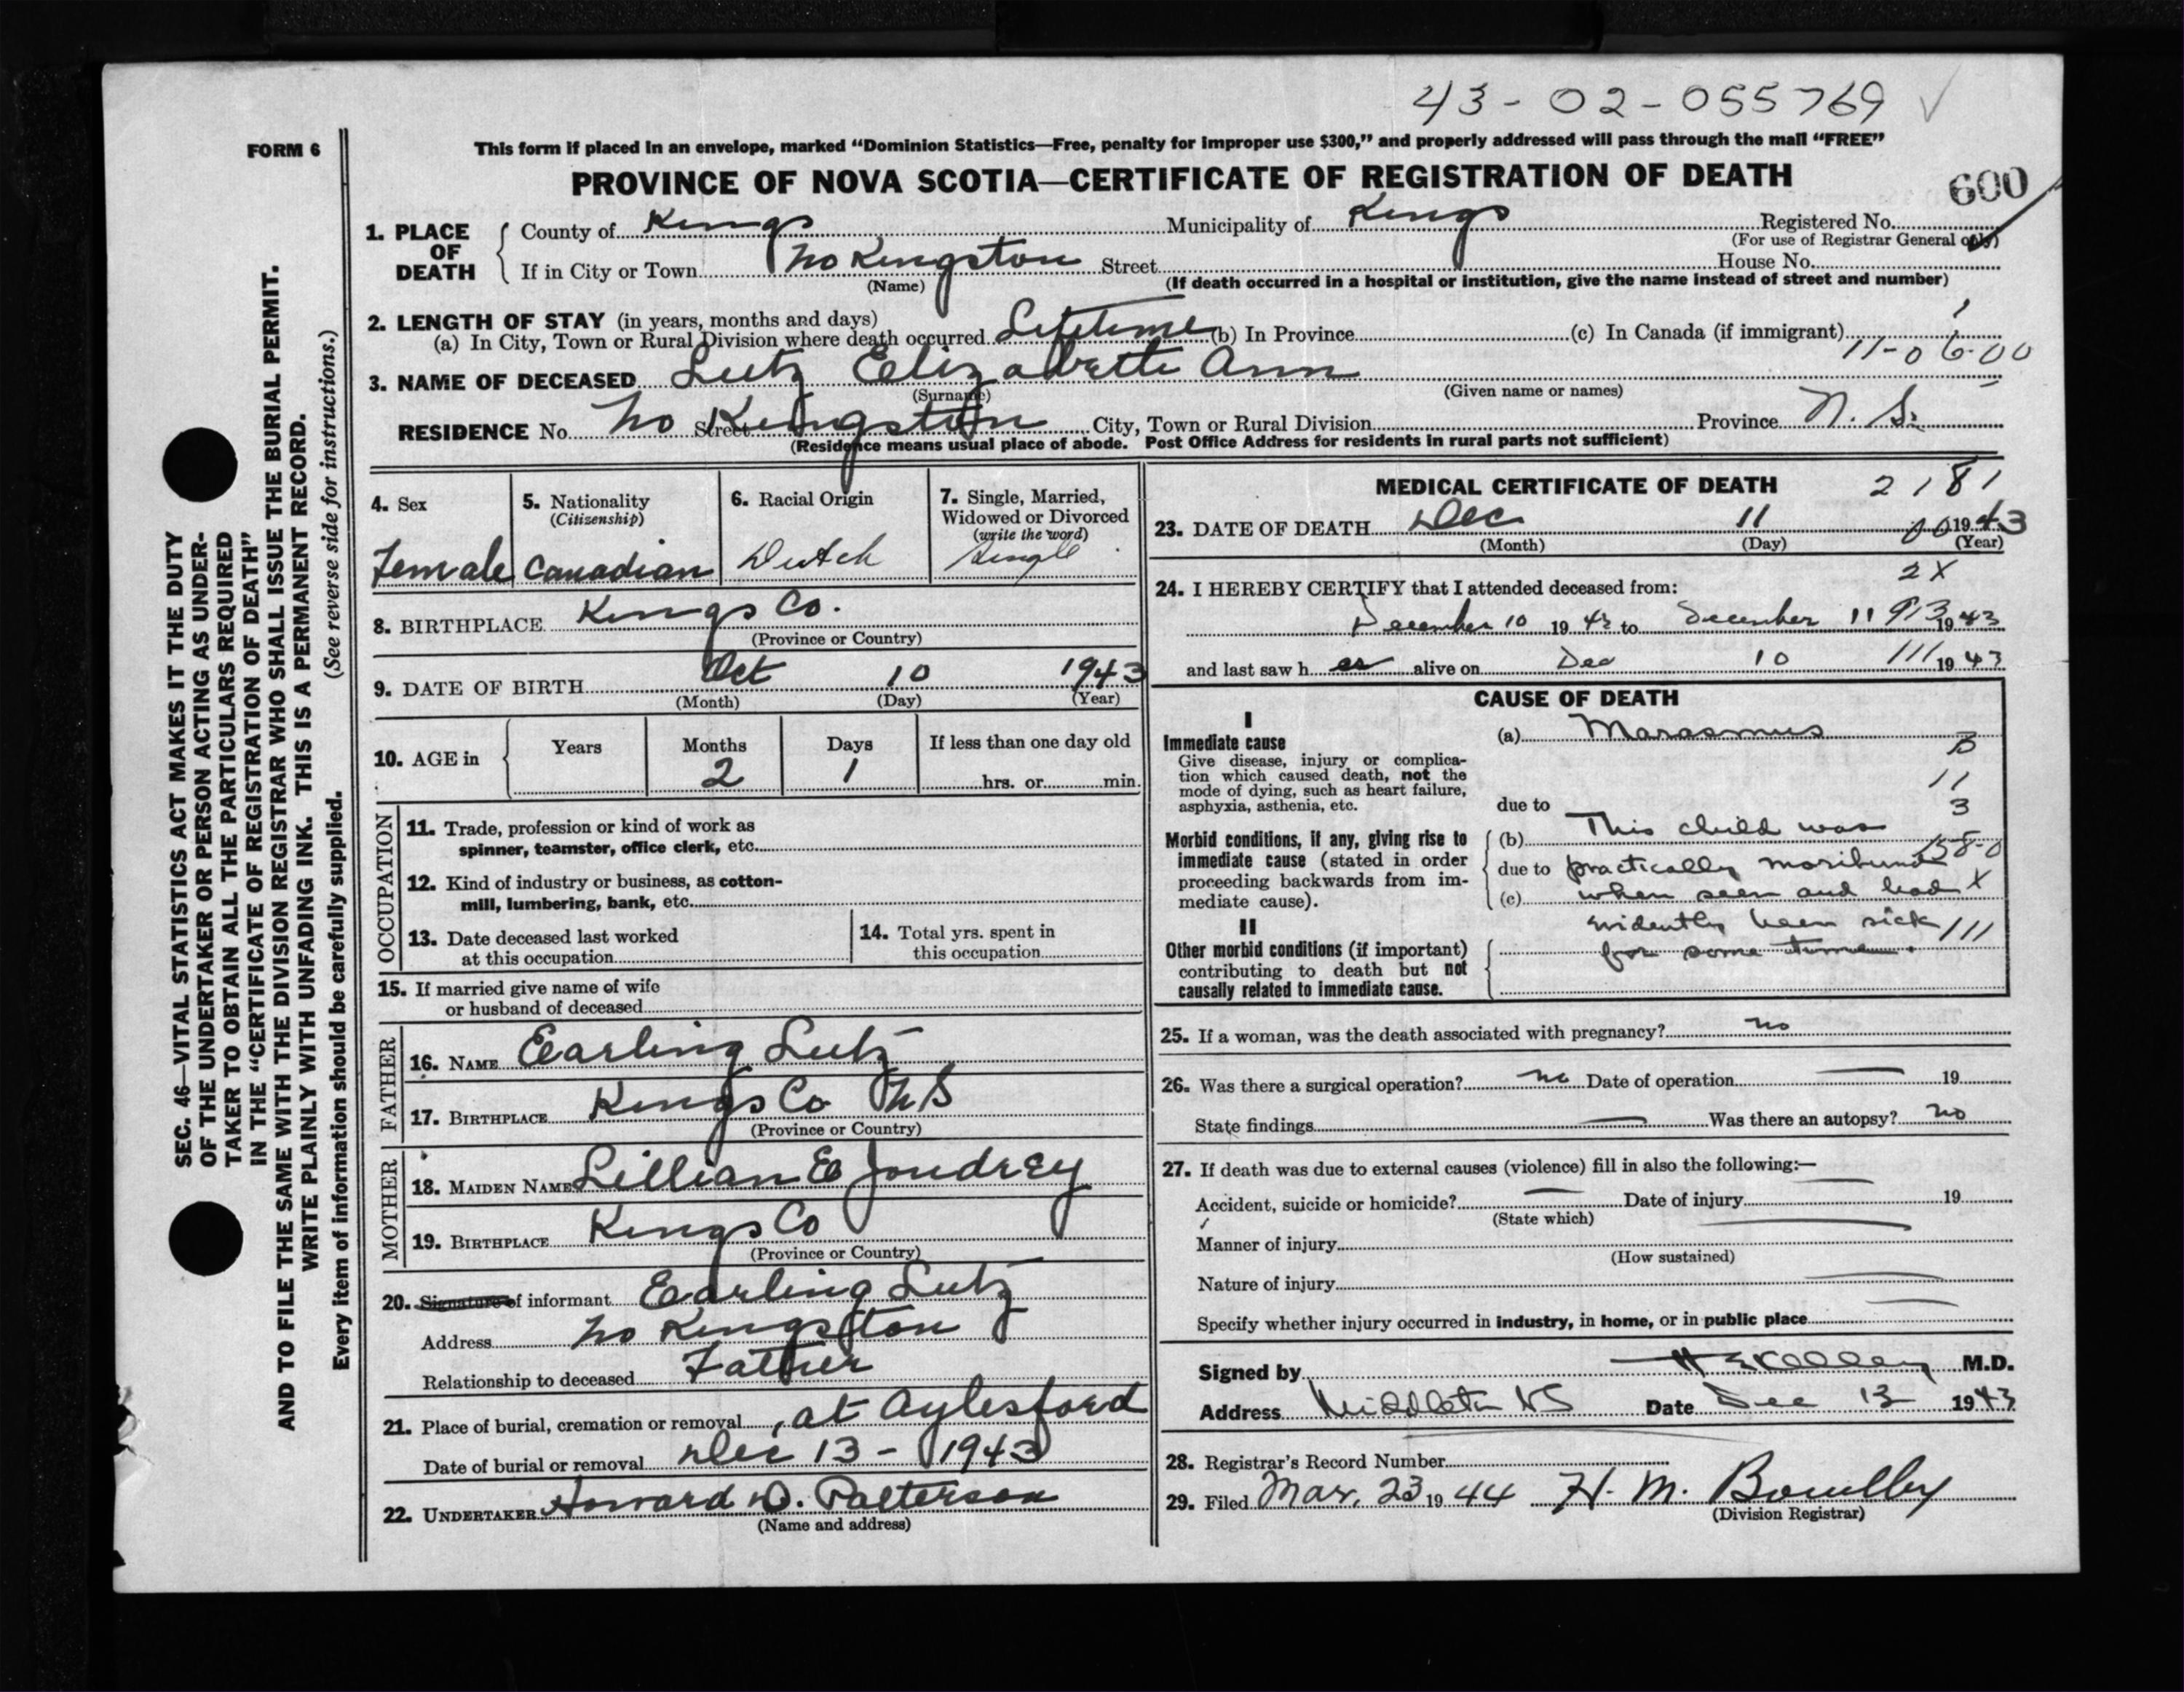 43-02-055769 ✓
FORM 6
This form if placed in an envelope, marked "Dominion Statistics—Free, penalty for improper use $300," and properly addressed will pass through the mail "FREE"
PROVINCE OF NOVA SCOTIA—CERTIFICATE OF REGISTRATION OF DEATH
600
1. PLACE OF DEATH
County of Kings Municipality of Kings Registered No.
(For use of Registrar General only)
If in City or Town No Kingston Street House No.
(Name) (If death occurred in a hospital or institution, give the name instead of street and number)
2. LENGTH OF STAY (in years, months and days)
(a) In City, Town or Rural Division where death occurred Lifetime (b) In Province (c) In Canada (if immigrant)
11-0 6-00
3. NAME OF DECEASED Lutz Elizabette Ann
(Surname) (Given name or names)
RESIDENCE No. No Kingston Street City, Town or Rural Division Province N. S.
(Residence means usual place of abode. Post Office Address for residents in rural parts not sufficient)
4. Sex
Female
5. Nationality
(Citizenship)
Canadian
6. Racial Origin
Dutch
7. Single, Married,
Widowed or Divorced
(write the word)
Single
8. BIRTHPLACE Kings Co.
(Province or Country)
9. DATE OF BIRTH Oct 10 1943
(Month) (Day) (Year)
10. AGE in
Years Months Days If less than one day old
2 1 hrs. or min.
OCCUPATION
11. Trade, profession or kind of work as
spinner, teamster, office clerk, etc.
12. Kind of industry or business, as cotton-
mill, lumbering, bank, etc.
13. Date deceased last worked
at this occupation
14. Total yrs. spent in
this occupation
15. If married give name of wife
or husband of deceased
FATHER
16. NAME Earling Lutz
17. BIRTHPLACE Kings Co NS
(Province or Country)
MOTHER
18. MAIDEN NAME Lillian E Joudrey
19. BIRTHPLACE Kings Co
(Province or Country)
20. Signature of informant Earling Lutz
Address No Kingston
Relationship to deceased Father
21. Place of burial, cremation or removal at Aylesford
Date of burial or removal Dec 13 - 1943
22. UNDERTAKER Howard D. Patterson
(Name and address)
MEDICAL CERTIFICATE OF DEATH
2181
23. DATE OF DEATH Dec 11 1943
(Month) (Day) (Year)
2X
24. I HEREBY CERTIFY that I attended deceased from:
December 10 1943 to December 11 1943
913
and last saw h er alive on Dec 10 1943
111
CAUSE OF DEATH
I
Immediate cause
Give disease, injury or complica-
tion which caused death, not the
mode of dying, such as heart failure,
asphyxia, asthenia, etc.
(a) Marasmus
11
3
due to
Morbid conditions, if any, giving rise to
immediate cause (stated in order
proceeding backwards from im-
mediate cause).
(b) This child was
158-0
due to practically moribund
(c) when seen and had X
II
evidently been sick 111
Other morbid conditions (if important)
contributing to death but not
causally related to immediate cause.
for some time.
25. If a woman, was the death associated with pregnancy? no
26. Was there a surgical operation? no Date of operation — 19
State findings — Was there an autopsy? no
27. If death was due to external causes (violence) fill in also the following:—
Accident, suicide or homicide? — Date of injury — 19
(State which)
Manner of injury
(How sustained)
Nature of injury
Specify whether injury occurred in industry, in home, or in public place
Signed by H E Kelley M.D.
Address Middleton NS Date Dec 13 1943
28. Registrar's Record Number
29. Filed Mar. 23 1944 H. M.
(Division Registrar)
SEC. 46—VITAL STATISTICS ACT MAKES IT THE DUTY
OF THE UNDERTAKER OR PERSON ACTING AS UNDER-
TAKER TO OBTAIN ALL THE PARTICULARS REQUIRED
IN THE "CERTIFICATE OF REGISTRATION OF DEATH"
AND TO FILE THE SAME WITH THE DIVISION REGISTRAR WHO SHALL ISSUE THE BURIAL PERMIT.
WRITE PLAINLY WITH UNFADING INK. THIS IS A PERMANENT RECORD.
Every item of information should be carefully supplied. (See reverse side for instructions.)